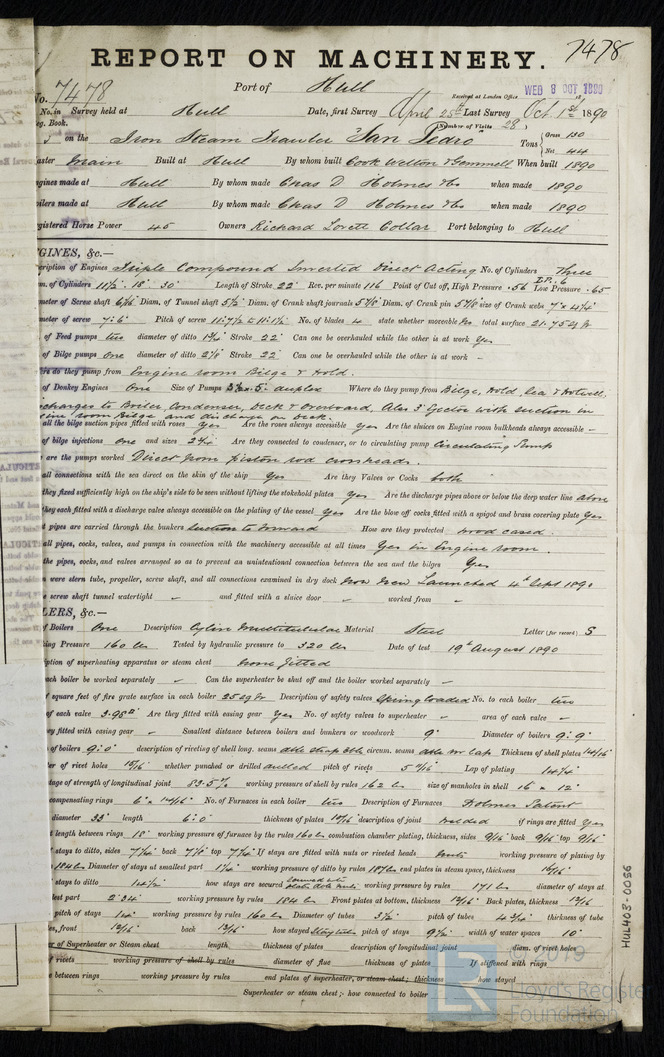 REPORT ON MACHINERY. 7478
Port of Hull
Received at London Office WED 8 OCT 1890
No. 7478
No. in Survey held at Hull Date, first Survey April 25th Last Survey Oct. 1st 1890
g. Book. (Number of Visits 28)
on the Iron Steam Trawler "San Pedro Tons Gross 130 Net 44
aster Main Built at Hull By whom built Cook Welton & Gemmell When built 1890
gines made at Hull By whom made Chas D Holmes & Co when made 1890
oilers made at Hull By whom made Chas D Holmes & Co when made 1890
gistered Horse Power 45 Owners Richard Lovett Collar Port belonging to Hull
GINES, &c.—
cription of Engines Triple Compound Inverted Direct Acting No. of Cylinders Three
m. of Cylinders 11½" 18" 30" Length of Stroke 22" Rev. per minute 116 Point of Cut off, High Pressure .56 I.P. .6 Low Pressure .65
meter of Screw shaft Diam. of Tunnel shaft 5½ Diam. of Crank shaft journals 5⅞ Diam. of Crank pin 5⅞ size of Crank webs 7" x 4¼"
meter of screw 7.6 Pitch of screw No. of blades 4 state whether moveable total surface 21.75 sq ft
of Feed pumps two diameter of ditto Stroke 22" Can one be overhauled while the other is at work Yes
of Bilge pumps One diameter of ditto 2⅛ Stroke 22" Can one be overhauled while the other is at work -
re do they pump from Engine room Bilge & Hold.
of Donkey Engines One Size of Pumps duplex Where do they pump from Bilge, Hold, Sea & Hotwell,
charges to Boiler, Condenser, Deck & Overboard, Also 3" Ejector with suction in
gine room Bilge and discharge on Deck.
all the bilge suction pipes fitted with roses Yes Are the roses always accessible Yes Are the sluices on Engine room bulkheads always accessible -
of bilge injections One and sizes Are they connected to condenser, or to circulating pump Circulating Pump
are the pumps worked Direct from piston rod crossheads.
all connections with the sea direct on the skin of the ship Yes Are they Valves or Cocks both
they fixed sufficiently high on the ship's side to be seen without lifting the stokehold plates Yes Are the discharge pipes above or below the deep water line above
they each fitted with a discharge valve always accessible on the plating of the vessel Yes Are the blow off cocks fitted with a spigot and brass covering plate Yes
t pipes are carried through the bunkers Suction to forward How are they protected wood cased.
all pipes, cocks, valves, and pumps in connection with the machinery accessible at all times Yes in Engine room.
the pipes, cocks, and valves arranged so as to prevent an unintentional connection between the sea and the bilges Yes
n were stern tube, propeller, screw shaft, and all connections examined in dry dock New Launched 4th Sept 1890
e screw shaft tunnel watertight - and fitted with a sluice door - worked from -
LERS, &c.—
f Boilers One Description Cylin Multitubular Material Steel Letter (for record) S
king Pressure 160 lbs Tested by hydraulic pressure to 320 lbs Date of test 19th August 1890
iption of superheating apparatus or steam chest None fitted
ach boiler be worked separately - Can the superheater be shut off and the boiler worked separately -
f square feet of fire grate surface in each boiler 25 sq ft Description of safety valves Spring loaded No. to each boiler two
of each valve 3.98" Are they fitted with easing gear Yes No. of safety valves to superheater - area of each valve -
y fitted with easing gear - Smallest distance between boilers and bunkers or woodwork 9" Diameter of boilers 9'.9"
of boilers 9'.0" description of riveting of shell long. seams circum. seams Thickness of shell plates
er of rivet holes whether punched or drilled drilled pitch of rivets Lap of plating
tage of strength of longitudinal joint 83.5% working pressure of shell by rules 162 lbs size of manholes in shell 16" x 12"
ompensating rings No. of Furnaces in each boiler two Description of Furnaces Holmes Patent
diameter 33" length 6'.0" thickness of plates description of joint welded if rings are fitted Yes
t length between rings 18" working pressure of furnace by the rules 160 lbs combustion chamber plating, thickness, sides 9/16 back 9/16 top 9/16
stays to ditto, sides 7¼ back 7½ top 7¼ If stays are fitted with nuts or riveted heads Nuts working pressure of plating by
184 lbs Diameter of stays at smallest part working pressure of ditto by rules end plates in steam space, thickness
stays to ditto how stays are secured working pressure by rules 171 lbs diameter of stays at
lest part 2.34" working pressure by rules 184 lbs Front plates at bottom, thickness Back plates, thickness
pitch of stays 14" working pressure by rules 160 lbs Diameter of tubes 3½ pitch of tubes thickness of tube
es, front back how stayed Stay tubes pitch of stays width of water spaces 10"
er of Superheater or Steam chest length thickness of plates description of longitudinal joint diam. of rivet holes
f rivets working pressure of shell by rules diameter of flue thickness of plates If stiffened with rings
e between rings working pressure by rules end plates of superheater, or steam chest; thickness how stayed
Superheater or steam chest; how connected to boiler
HUL403-0036
© 2019
Lloyd's Register
Foundation